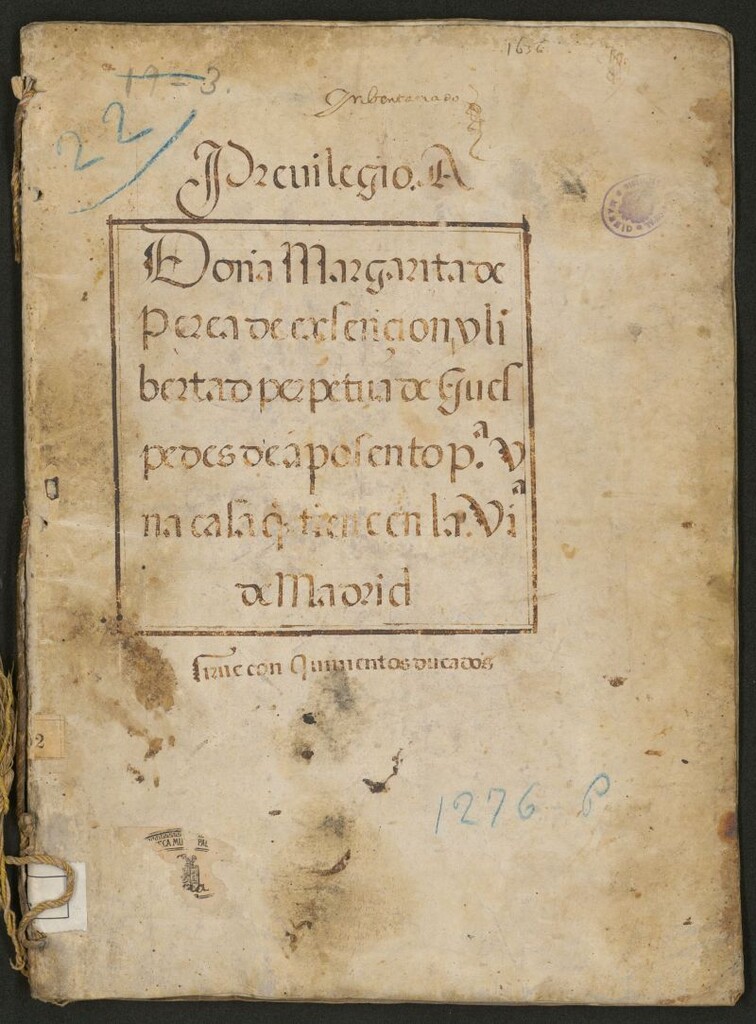 1636
17=3.
22
Inbentariado
Preuilegio. A
Doña Margarita de
Perea de exsençion y li
bertad perpetua de Gues
pedes de aposento p.ª V
na casa q̃ tiene en la Viª
de Madrid
sirue con Quinientos ducados
02
1276 P